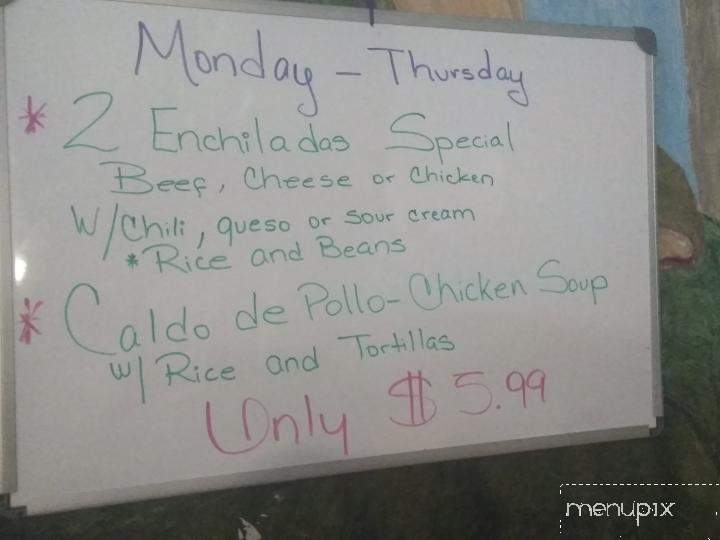 Monday - Thursday
* 2 Enchiladas Special
Beef, Cheese or Chicken
W/Chili, queso or sour cream
* Rice and Beans
* Caldo de Pollo - Chicken Soup
w/ Rice and Tortillas
Only $5.99
menupix